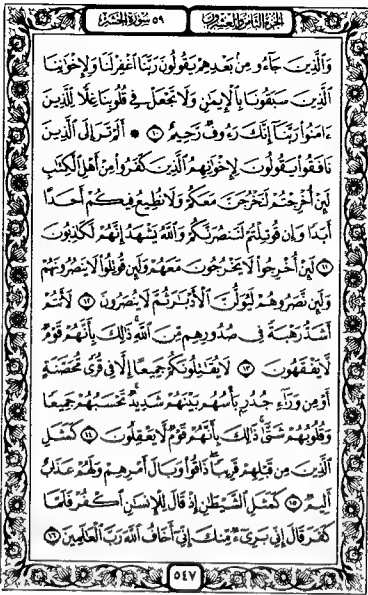 الجزء الثامن والعشرون
٥٩ سورة الحشر
وَٱلَّذِينَ جَآءُو مِنۢ بَعْدِهِمْ يَقُولُونَ رَبَّنَا ٱغْفِرْ لَنَا وَلِإِخْوَٰنِنَا
ٱلَّذِينَ سَبَقُونَا بِٱلْإِيمَٰنِ وَلَا تَجْعَلْ فِى قُلُوبِنَا غِلًّا لِّلَّذِينَ
ءَامَنُوا۟ رَبَّنَآ إِنَّكَ رَءُوفٌ رَّحِيمٌ ١٠ * أَلَمْ تَرَ إِلَى ٱلَّذِينَ
نَافَقُوا۟ يَقُولُونَ لِإِخْوَٰنِهِمُ ٱلَّذِينَ كَفَرُوا۟ مِنْ أَهْلِ ٱلْكِتَٰبِ
لَئِنْ أُخْرِجْتُمْ لَنَخْرُجَنَّ مَعَكُمْ وَلَا نُطِيعُ فِيكُمْ أَحَدًا
أَبَدًا وَإِن قُوتِلْتُمْ لَنَنصُرَنَّكُمْ وَٱللَّهُ يَشْهَدُ إِنَّهُمْ لَكَٰذِبُونَ
١١ لَئِنْ أُخْرِجُوا۟ لَا يَخْرُجُونَ مَعَهُمْ وَلَئِن قُوتِلُوا۟ لَا يَنصُرُونَهُمْ
وَلَئِن نَّصَرُوهُمْ لَيُوَلُّنَّ ٱلْأَدْبَٰرَ ثُمَّ لَا يُنصَرُونَ ١٢ لَأَنتُمْ
أَشَدُّ رَهْبَةً فِى صُدُورِهِم مِّنَ ٱللَّهِ ۚ ذَٰلِكَ بِأَنَّهُمْ قَوْمٌ
لَّا يَفْقَهُونَ ١٣ لَا يُقَٰتِلُونَكُمْ جَمِيعًا إِلَّا فِى قُرًى مُّحَصَّنَةٍ
أَوْ مِن وَرَآءِ جُدُرٍۭ ۚ بَأْسُهُم بَيْنَهُمْ شَدِيدٌ ۚ تَحْسَبُهُمْ جَمِيعًا
وَقُلُوبُهُمْ شَتَّىٰ ۚ ذَٰلِكَ بِأَنَّهُمْ قَوْمٌ لَّا يَعْقِلُونَ ١٤ كَمَثَلِ
ٱلَّذِينَ مِن قَبْلِهِمْ قَرِيبًا ۖ ذَاقُوا۟ وَبَالَ أَمْرِهِمْ وَلَهُمْ عَذَابٌ
أَلِيمٌ ١٥ كَمَثَلِ ٱلشَّيْطَٰنِ إِذْ قَالَ لِلْإِنسَٰنِ ٱكْفُرْ فَلَمَّا
كَفَرَ قَالَ إِنِّى بَرِىٓءٌ مِّنكَ إِنِّىٓ أَخَافُ ٱللَّهَ رَبَّ ٱلْعَٰلَمِينَ ١٦
٥٤٧